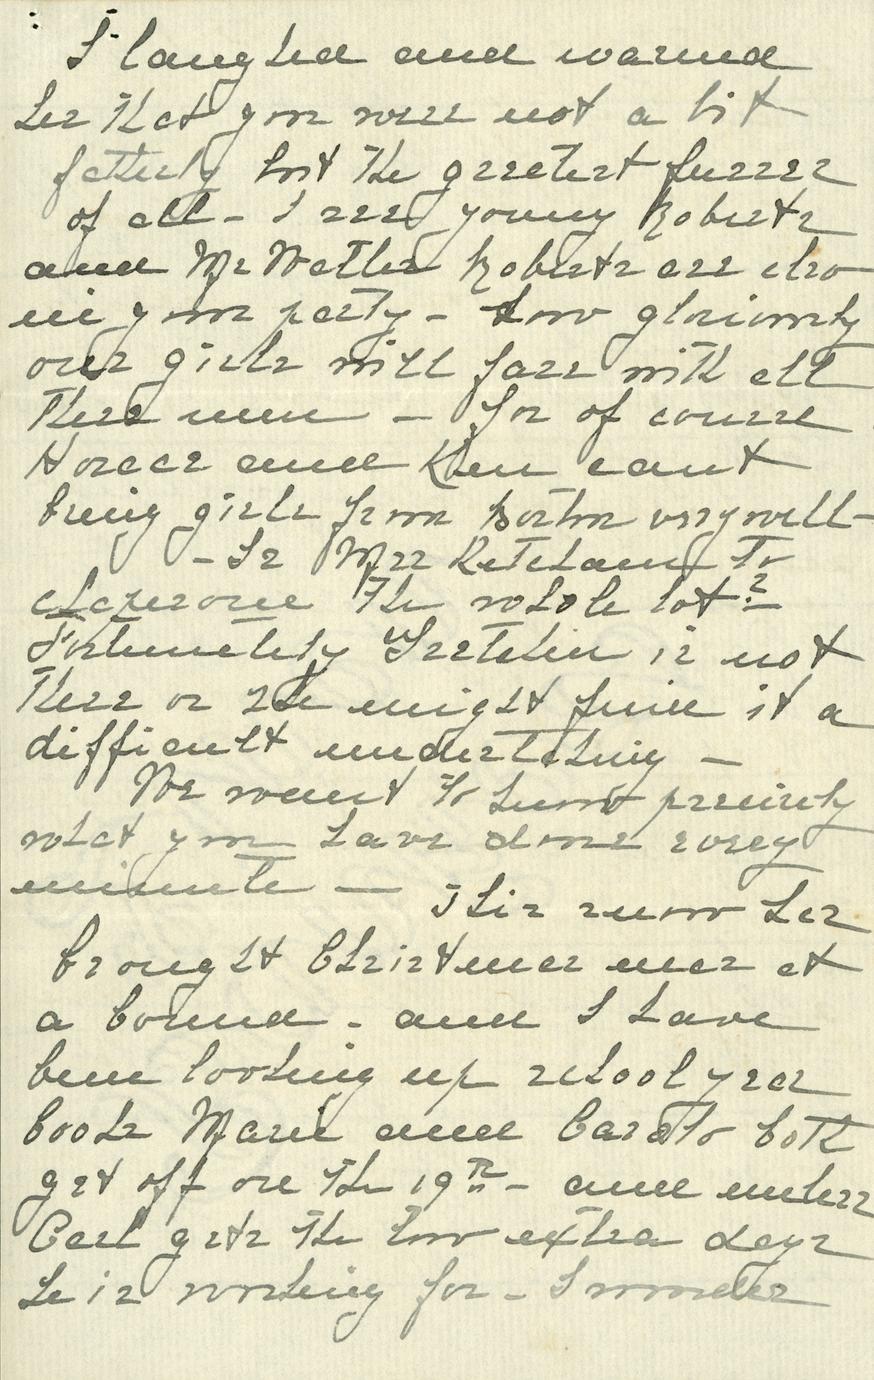 I laughed and warned
her that you were not a bit
fatherly but the greatest fusser
of all - I see young Roberts
and Mr Walter Roberts are also
in your party - How gloriously
our girls will fare with all
these men - For of course
Horace and Ken cant
bring girls from Boston very well -
- Is Mrs Ketcham to
chaperone the whole lot?
Fortunately Gretchen is not
there or she might find it a
difficult undertaking -
We want to know precisely
what you have done every
minute -
This snow has
brought Christmas near at
a bound - and I have
been looking up school year
books Marie and to both
get off on the 19th - and unless
Carl gets the two extra days
he is working for - I wonder